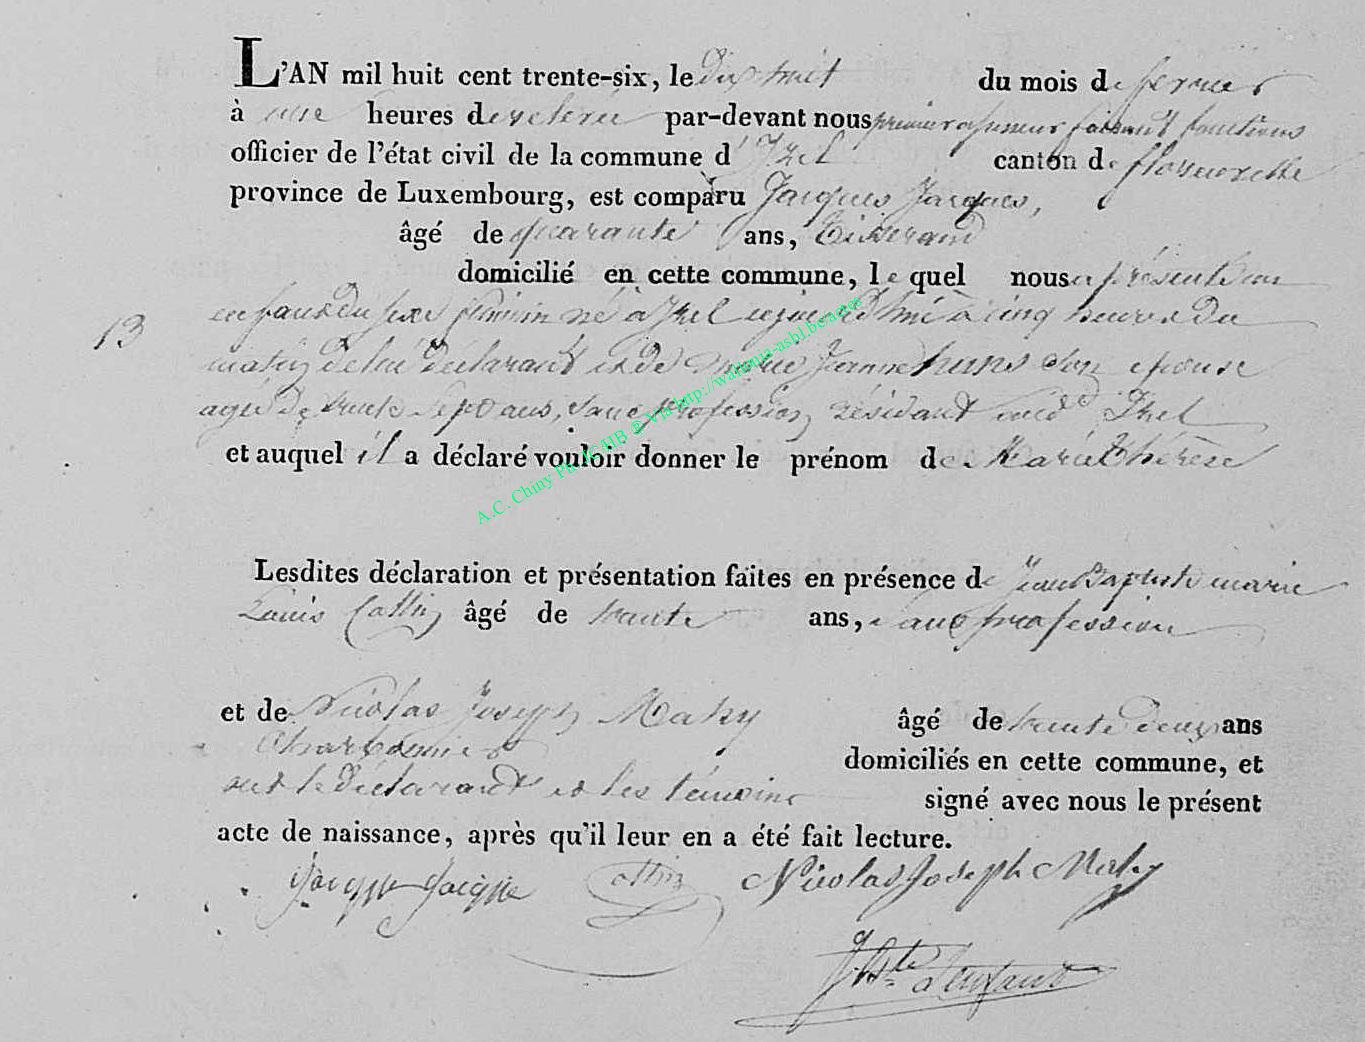 L'AN mil huit cent trente-six, le dix huit du mois de fevrier
à une heures de relevée par-devant nous premier assesseur faisant fonctions
officier de l'état civil de la commune d'Izel canton de florenville
province de Luxembourg, est comparu Jacques Jacques,
âgé de quarante ans, Tisserand
domicilié en cette commune, le quel nous a présenté un
13 enfant du sexe féminin né à Izel aujourd'hui à cinq heures du
matin de lui déclarant et de Marie Jeanne son epouse
agée de trente sept ans, sans profession, résidant Izel
et auquel il a déclaré vouloir donner le prénom de Marie Thérèse
Lesdites déclaration et présentation faites en présence de Jean Baptiste marie
Louis Collin âgé de trente ans, sans profession
et de Nicolas Joseph Mahy âgé de trente deux ans
Charbonnier
domiciliés en cette commune, et
ont le Déclarant et les témoins signé avec nous le présent
acte de naissance, après qu'il leur en a été fait lecture.
Jacque Jacque Collin Nicolas Joseph Mahy
JBste Lenfant
A.C. Chiny Ph. ICHB @ Via http://wallonia-asbl.be/actes